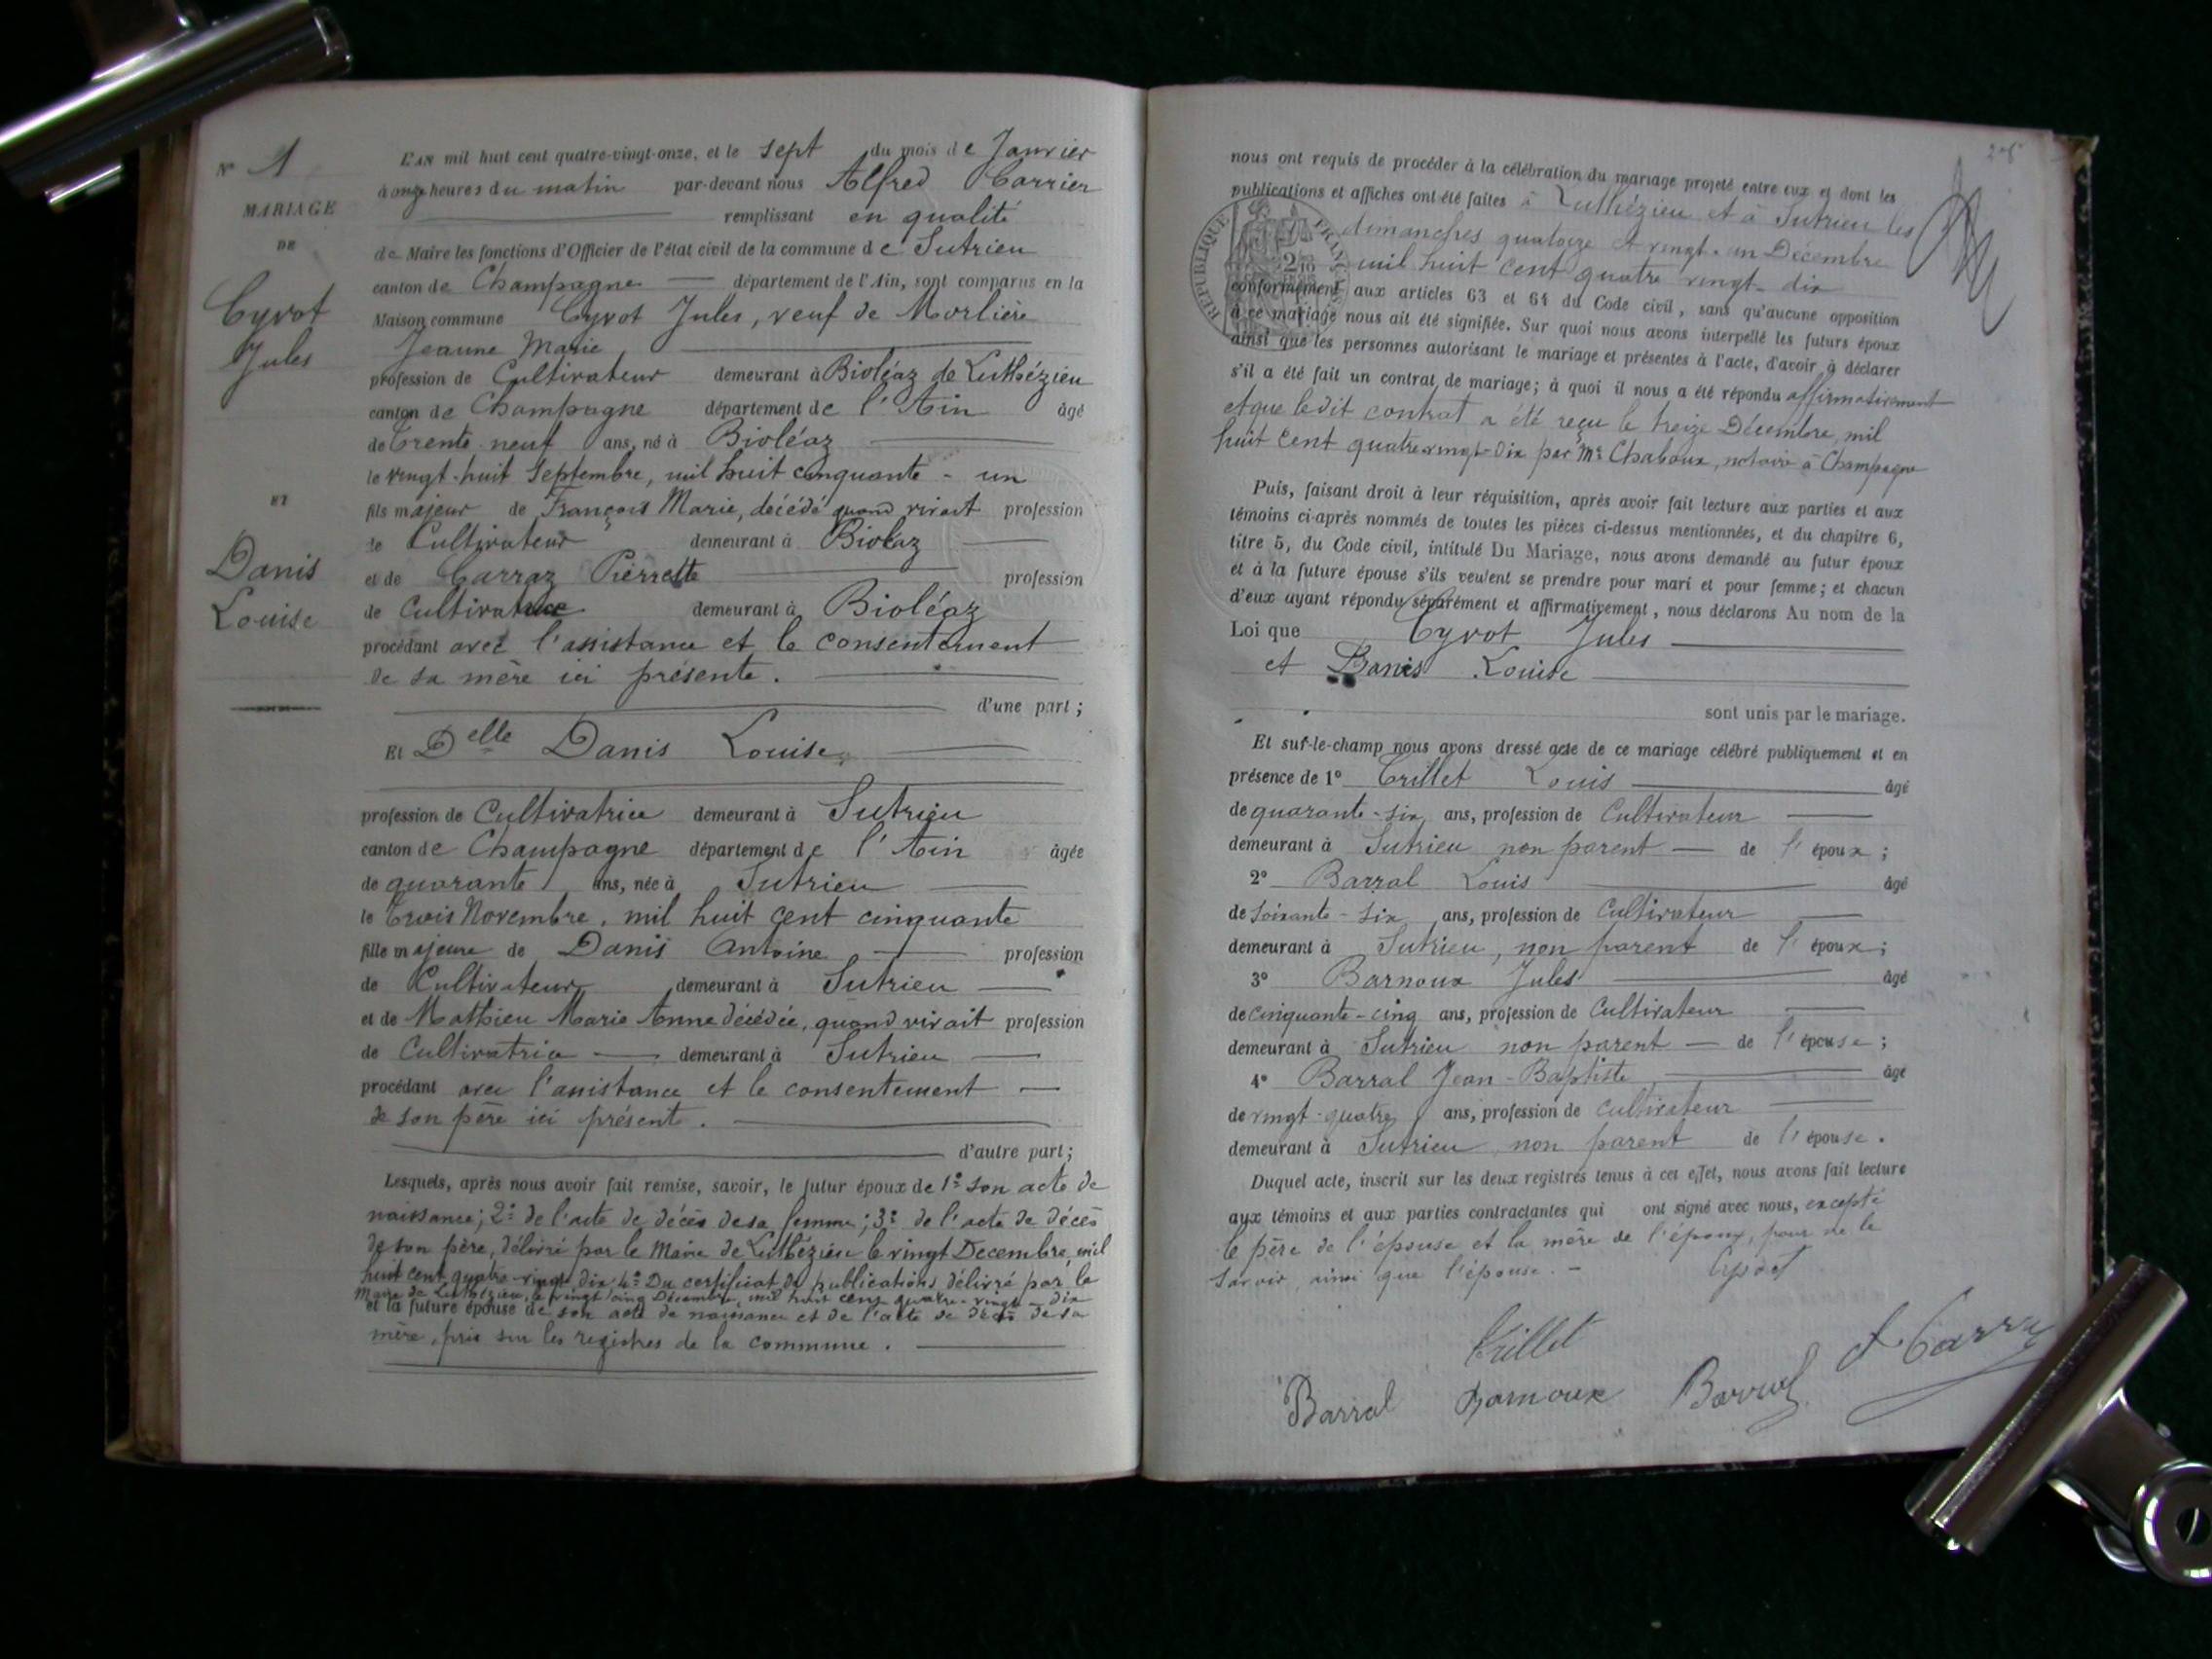 N° 1
MARIAGE
DE
Cyvot
Jules
ET
Danis
Louise
L'AN mil huit cent quatre-vingt-onze, et le sept du mois de Janvier
à onze heures du matin par-devant nous Alfred Carrier
remplissant en qualité
de Maire les fonctions d'Officier de l'état civil de la commune de Sutrieu
canton de Champagne département de l'Ain, sont comparus en la
Maison commune Cyvot Jules, veuf de Morlière
Jeanne Marie
profession de Cultivateur demeurant à Bioléaz de Luthézieu
canton de Champagne département de l'Ain âgé
de Trente-neuf ans, né à Bioléaz
le vingt-huit Septembre, mil huit cinquante-un
fils majeur de François Marie, décédé quand vivait profession
de Cultivateur demeurant à Bioléaz
et de Carraz Pierrette profession
de Cultivatrice demeurant à Bioléaz
procédant avec l'assistance et le consentement
de sa mère ici présente.
d'une part ;
Et Delle Danis Louise
profession de Cultivatrice demeurant à Sutrieu
canton de Champagne département de l'Ain âgée
de quarante ans, née à Sutrieu
le Trois Novembre, mil huit cent cinquante
fille majeure de Danis Antoine profession
de Cultivateur demeurant à Sutrieu
et de Mathieu Marie Anne décédée, quand vivait profession
de Cultivatrice demeurant à Sutrieu
procédant avec l'assistance et le consentement
de son père ici présent.
d'autre part ;
Lesquels, après nous avoir fait remise, savoir, le futur époux de 1° son acte de
naissance; 2° de l'acte de décès de sa femme; 3° de l'acte de décès
de son père, délivré par le Maire de Luthézieu le vingt Décembre, mil
huit cent quatre-vingt dix 4° Du certificat de publications délivré par le
Maire de Luthézieu, le vingt cinq Décembre, mil huit cent quatre-vingt-dix
et la future épouse de son acte de naissance et de l'acte de décès de sa
mère, pris sur les registres de la commune.
nous ont requis de procéder à la célébration du mariage projeté entre eux et dont les
publications et affiches ont été faites à Luthézieu et à Sutrieu les
dimanches quatorze et vingt-un Décembre
mil huit cent quatre vingt-dix
conformément aux articles 63 et 64 du Code civil, sans qu'aucune opposition
à ce mariage nous ait été signifiée. Sur quoi nous avons interpellé les futurs époux
ainsi que les personnes autorisant le mariage et présentes à l'acte, d'avoir à déclarer
s'il a été fait un contrat de mariage; à quoi il nous a été répondu affirmativement
et que ledit contrat a été reçu le treize Décembre, mil
huit cent quatre vingt-dix par Me Chaboux, notaire à Champagne
Puis, faisant droit à leur réquisition, après avoir fait lecture aux parties et aux
témoins ci-après nommés de toutes les pièces ci-dessus mentionnées, et du chapitre 6,
titre 5, du Code civil, intitulé Du Mariage, nous avons demandé au futur époux
et à la future épouse s'ils veulent se prendre pour mari et pour femme; et chacun
d'eux ayant répondu séparément et affirmativement, nous déclarons Au nom de la
Loi que Cyvot Jules
et Danis Louise
sont unis par le mariage.
Et sur-le-champ nous avons dressé acte de ce mariage célébré publiquement et en
présence de 1° Trillet Louis âgé
de quarante-six ans, profession de Cultivateur
demeurant à Sutrieu non parent de l'époux ;
2° Barral Louis âgé
de soixante-six ans, profession de Cultivateur
demeurant à Sutrieu, non parent de l'époux ;
3° Barnoux Jules âgé
de cinquante-cinq ans, profession de Cultivateur
demeurant à Sutrieu non parent de l'épouse ;
4° Barral Jean-Baptiste âgé
de vingt-quatre ans, profession de Cultivateur
demeurant à Sutrieu non parent de l'épouse.
Duquel acte, inscrit sur les deux registres tenus à cet effet, nous avons fait lecture
aux témoins et aux parties contractantes qui ont signé avec nous, excepté
le père de l'épouse et la mère de l'époux, pour ne le
savoir, ainsi que l'épouse. Cyvot
Trillet
Barral Barnoux Barral